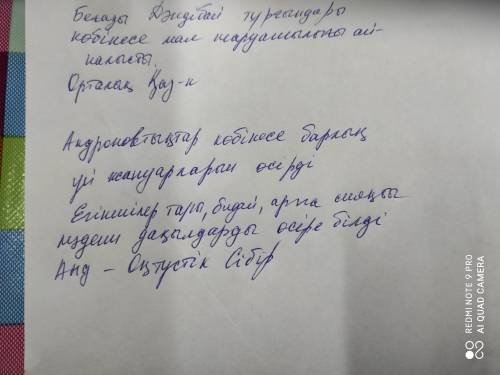 Беғазы Дәндібай тұрғындары
көбінесе мал шардашылығы ай-
налысты.
Орталық Қаз-н
Андроновтықтар көбінесе барлық
үй жануарларын өсірді
Егіншілер тары, бидай, арпа сияқты
дақылдарды өсіре білді
Анд - Оңтүстік Сібір
REDMI NOTE 9 PRO
AI QUAD CAMERA